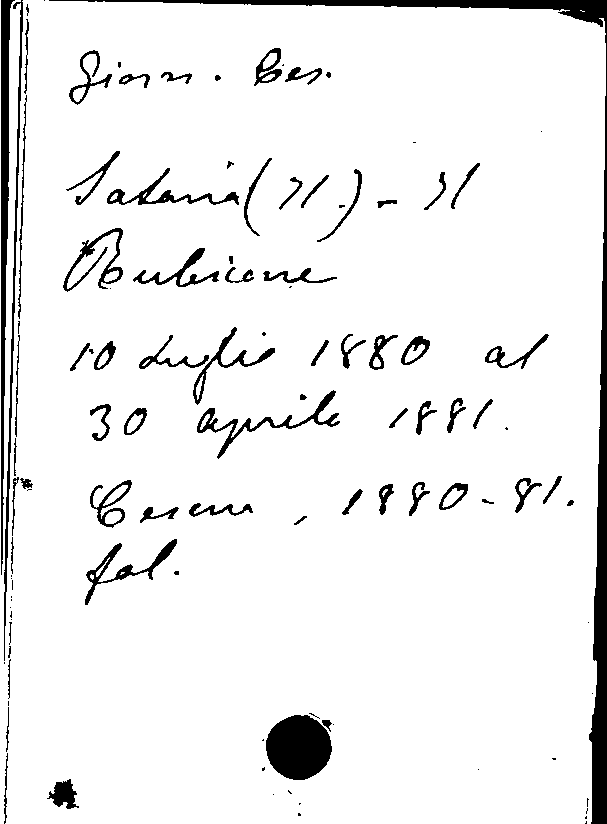 Giorn. Ces.
Satana (Il) - Il
Rubicone
10 Luglio 1880 al
30 aprile 1881.
Cesena, 1880-81.
fol.